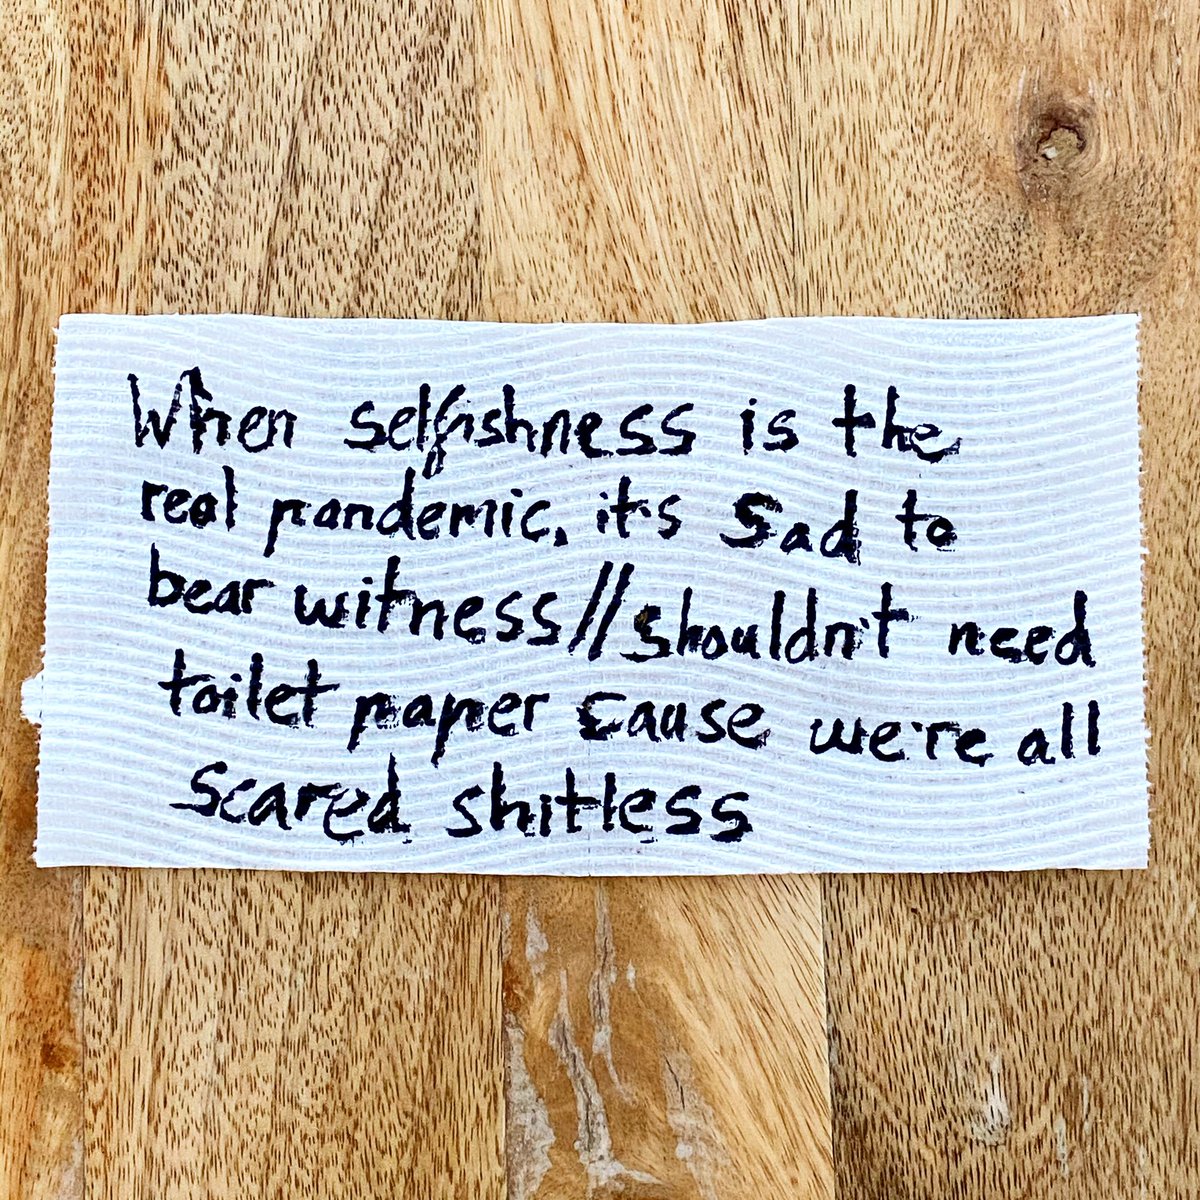 When selfishness is the
real pandemic, it's sad to
bear witness//shouldn't need
toilet paper cause we're all
scared shitless